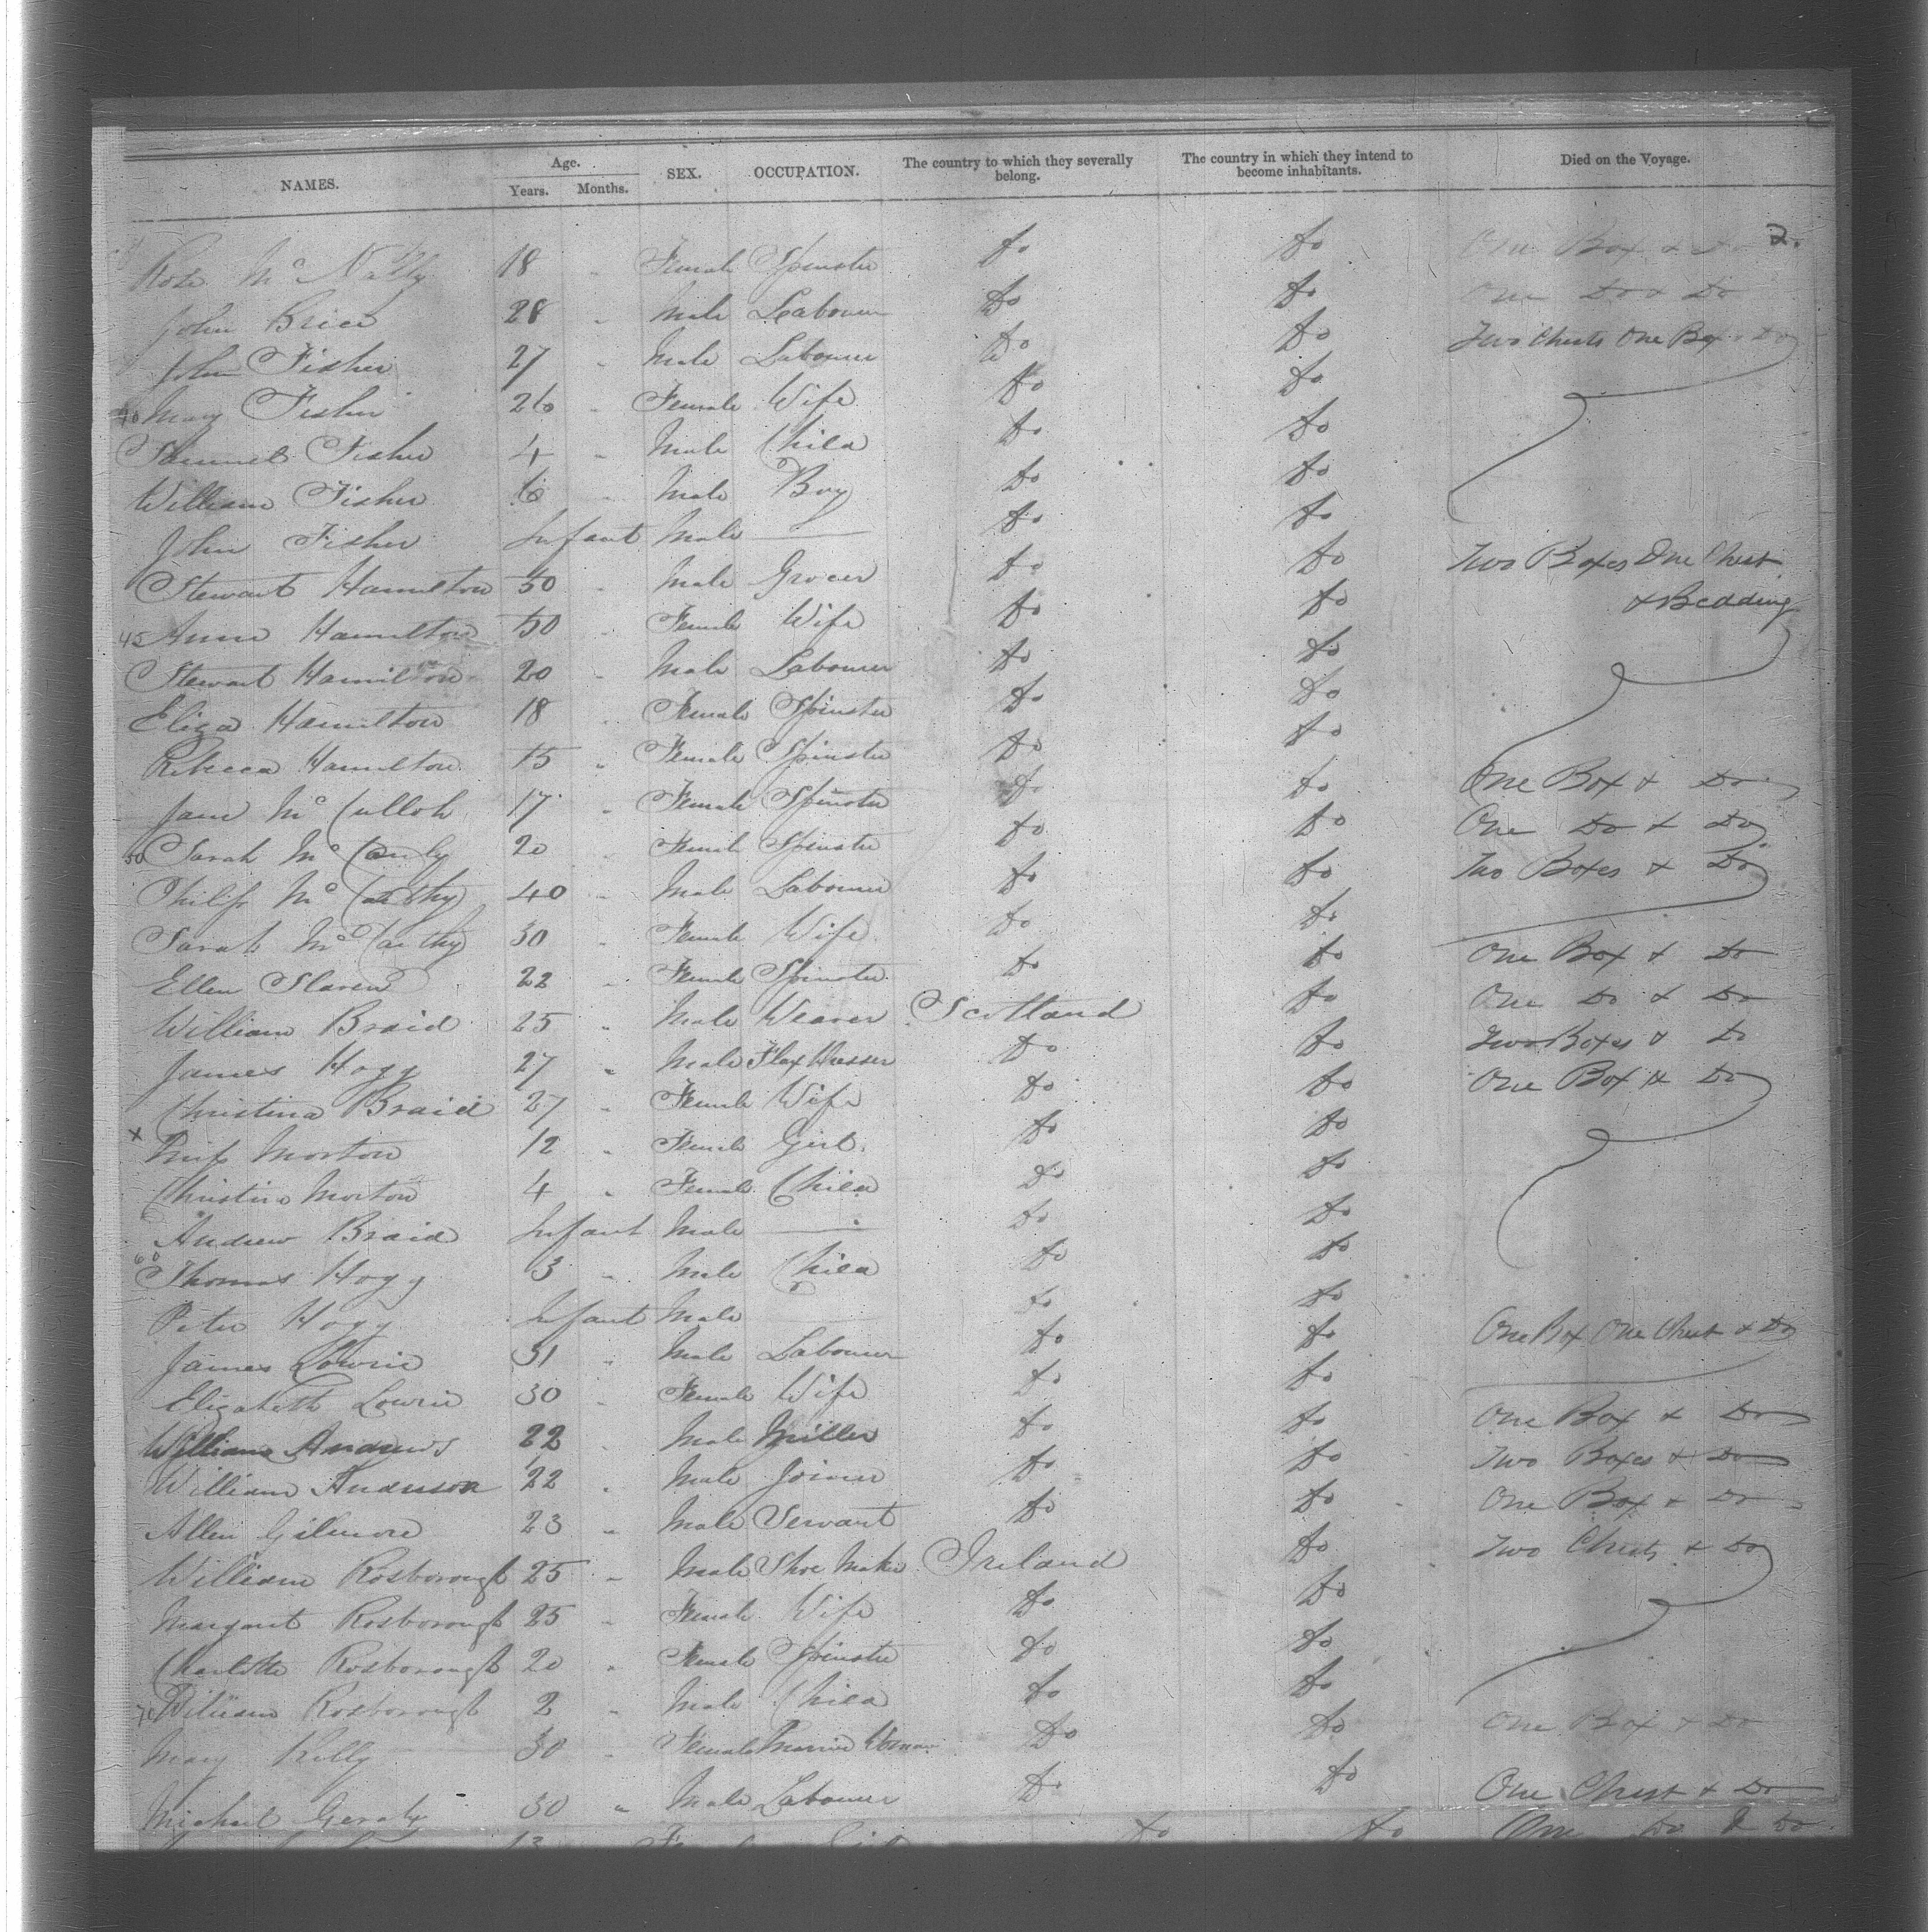 NAMES. Age. Years. Months. SEX. OCCUPATION. The country to which they severally belong. The country in which they intend to become inhabitants. Died on the Voyage.
2.
Rose Mc Nally 18 " Female Spinster Do Do One Box & Do
John Brice 28 " Male Labourer Do Do One Do & Do
John Fisher 27 " Male Labourer Do Do Two Chests One Box & Do
40 Mary Fisher 26 " Female Wife Do Do
Samuel Fisher 4 " Male Child Do Do
William Fisher 6 " Male Boy Do Do
John Fisher Infant Male — Do Do
Stewart Hamilton 50 " Male Grocer Do Do Two Boxes One Chest
& Bedding
45 Anne Hamilton 50 " Female Wife Do Do
Stewart Hamilton 20 " Male Labourer Do Do
Eliza Hamilton 18 " Female Spinster Do Do
Rebecca Hamilton 15 " Female Spinster Do Do
Jane Mc Culloh 17 " Female Spinster Do Do One Box & Do
50 Sarah Mc 20 " Female Spinster Do Do One Do & Do
Philip Mc Carthy 40 " Male Labourer Do Do Two Boxes & Do
Sarah Mc Carthy 30 " Female Wife Do Do
Ellen Slaven 22 " Female Spinster Do Do One Box & Do
William Braid 25 " Male Weaver Scotland Do One Do & Do
James Hogg 27 " Male Flax Dresser Do Do Two Boxes & Do
Christina Braid 27 " Female Wife Do Do One Box & Do
x Morton 12 " Female Girl Do Do
Christina Morton 4 " Female Child Do Do
Andrew Braid Infant Male — Do Do
60 Thomas Hogg 3 " Male Child Do Do
Peter Hogg Infant Male — Do Do
James Lowrie 31 " Male Labourer Do Do One Box One Chest & Do
Elizabeth Lowrie 30 " Female Wife Do Do
William Andrews 22 " Male Miller Do Do One Box & Do
William Anderson 22 " Male Joiner Do Do Two Boxes & Do
Allen Gilmore 23 " Male Servant Do Do One Box & Do
William Rosborough 25 " Male Shoe Maker Ireland Do Two Chests & Do
Margaret Rosborough 25 " Female Wife Do Do
Charlotte Rosborough 20 " Female Spinster Do Do
70 William Rosborough 2 " Male Child Do Do
Mary Kelly 30 " Female Married Woman Do Do One Box & Do
Michael Geraty 30 " Male Labourer Do Do One Chest & Do
13 Do Do One Do & Do